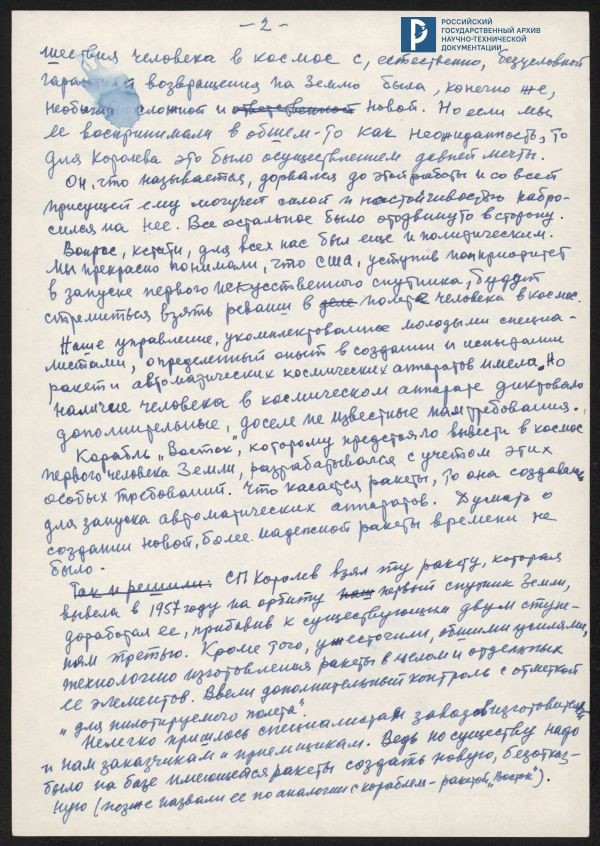 – 2 –
РОССИЙСКИЙ
ГОСУДАРСТВЕННЫЙ АРХИВ
НАУЧНО-ТЕХНИЧЕСКОЙ
ДОКУМЕНТАЦИИ
шествия человека в космос с, естественно, безусловной
гарантией возвращения на Землю была, конечно же,
необычайно сложной и ответственной новой. Но если мы
ее воспринимали в общем-то как неожиданность, то
для Королева это было осуществлением давней мечты.
Он, что называется, дорвался до этой работы и со всей
присущей ему могучей силой и настойчивостью набро-
сился на нее. Все остальное было отодвинуто в сторону.
Вопрос, кстати, для всех нас был еще и политическим.
Мы прекрасно понимали, что США, уступив нам приоритет
в запуске первого искусственного спутника, будут
стремиться взять реванш в деле полета человека в космос.
Наше управление, укомплектованное молодыми специа-
листами, определенный опыт в создании и испытании
ракет и автоматических космических аппаратов имела. Но
наличие человека в космическом аппарате диктовало
дополнительные, доселе не известные нам требования.
Корабль „Восток", которому предстояло вывести в космос
первого человека Земли, разрабатывался с учетом этих
особых требований. Что касается ракеты, то она создавалась
для запуска автоматических аппаратов. Думать о
создании новой, более надежной ракеты времени не
было.
Так и решили: СП Королев взял ту ракету, которая
вывела в 1957 году на орбиту наш первый спутник Земли,
доработал ее, прибавив к существующим двум ступе-
ням третью. Кроме того, ужесточили, общими усилиями,
технологию изготовления ракеты в целом и отдельных
ее элементов. Ввели дополнительный контроль с отметкой
„для пилотируемого полета".
Нелегко пришлось специалистам заводов изготовителей
и нам заказчикам и приемщикам. Ведь по существу надо
было на базе имеющейся ракеты создать новую, безотказ-
ную (позже назвали ее по аналогии с кораблем – ракетой „Восток").